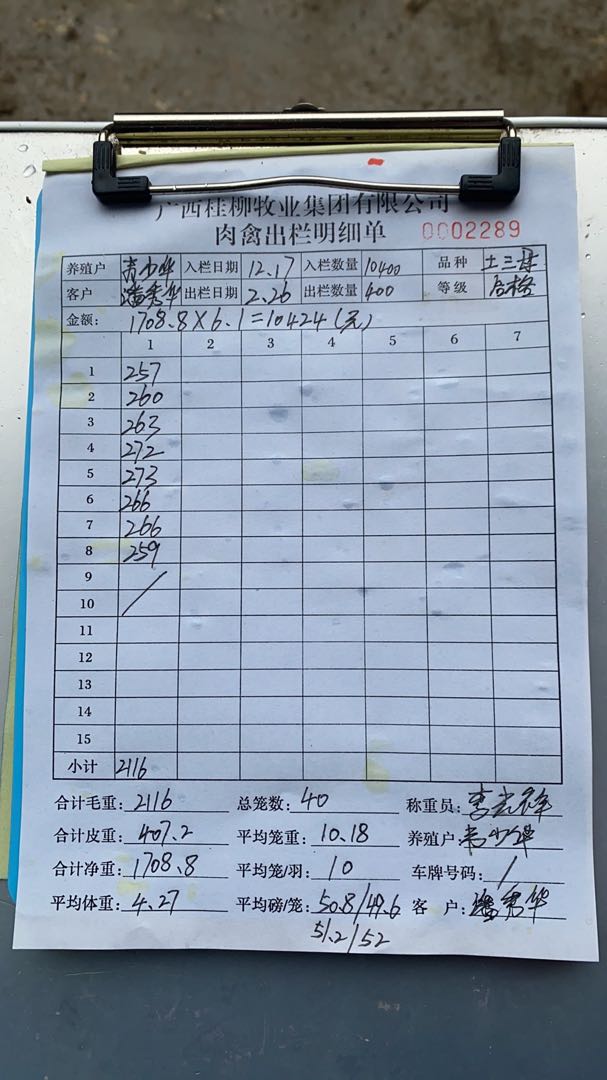 广西桂柳牧业集团有限公司
肉禽出栏明细单 0002289
养殖户 入栏日期 12.17 入栏数量 10400 品种 土三
客户 潘秀华 出栏日期 2.26 出栏数量 400 等级 合格
金额: 1708.8×6.1=10424(元)
1 2 3 4 5 6 7
1 257
2 260
3 263
4 272
5 273
6 266
7 266
8 259
9
10 /
11
12
13
14
15
小计 2116
合计毛重: 2116 总笼数: 40 称重员:
合计皮重: 407.2 平均笼重: 10.18 养殖户:
合计净重: 1708.8 平均笼/羽: 10 车牌号码: /
平均体重: 4.27 平均磅/笼: 50.8/49.6 客 户: 潘秀华
51.2/52